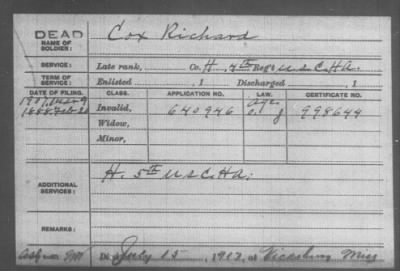 DEAD
NAME OF SOLDIER:
Cox Richard
SERVICE:
Late rank, Co. H, 4th Reg't U S C H A.
TERM OF SERVICE:
Enlisted , 1 Discharged , 1
DATE OF FILING. CLASS. APPLICATION NO. LAW. CERTIFICATE NO.
1888 Feb 20 Invalid, 640946 998644
Widow,
Minor,
ADDITIONAL SERVICES:
H. 5th U S C H A.
REMARKS:
Died July 15, 1912, at Vicksburg Miss